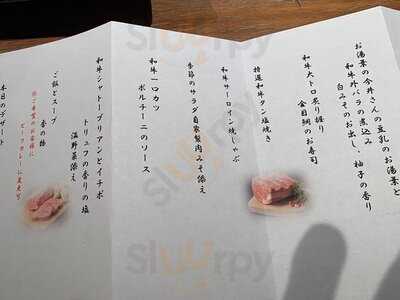 お湯葉の今井さんの豆乳のお湯葉と
和牛外バラの煮込み
白みそのお出し、柚子の香り
和牛大トロ炙り握り
金目鯛のお寿司
特選和牛タン塩焼き
和牛サーロイン焼しゃぶ
季節のサラダ自家製肉みそ添え
和牛一口カツ
ポルチーニのソース
和牛シャトーブリアンとイチボ
トリュフの香りの塩
温野菜添え
ご飯とスープ
香の物
※ご希望のお客様に
ビーフカレーに変更可
本日のデザート
Sluurpy
Sluurpy
Sluurpy